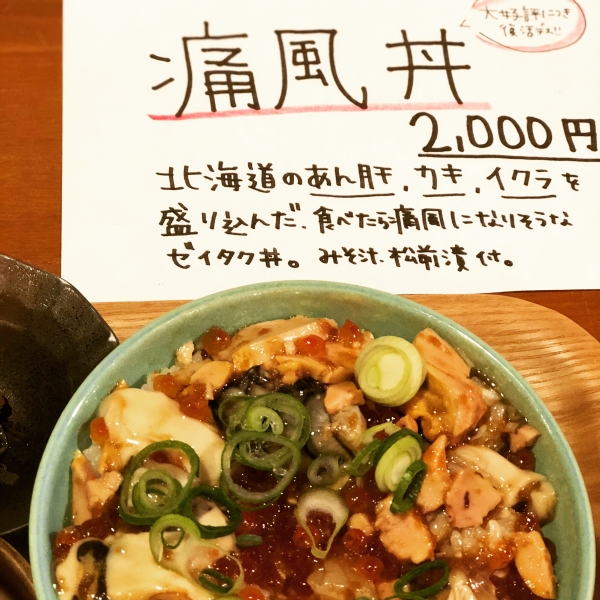 大好評につき
復活デス!!
痛風丼
2,000円
北海道のあん肝、カキ、イクラを
盛り込んだ、食べたら痛風になりそうな
ゼイタク丼。みそ汁、松前漬付。